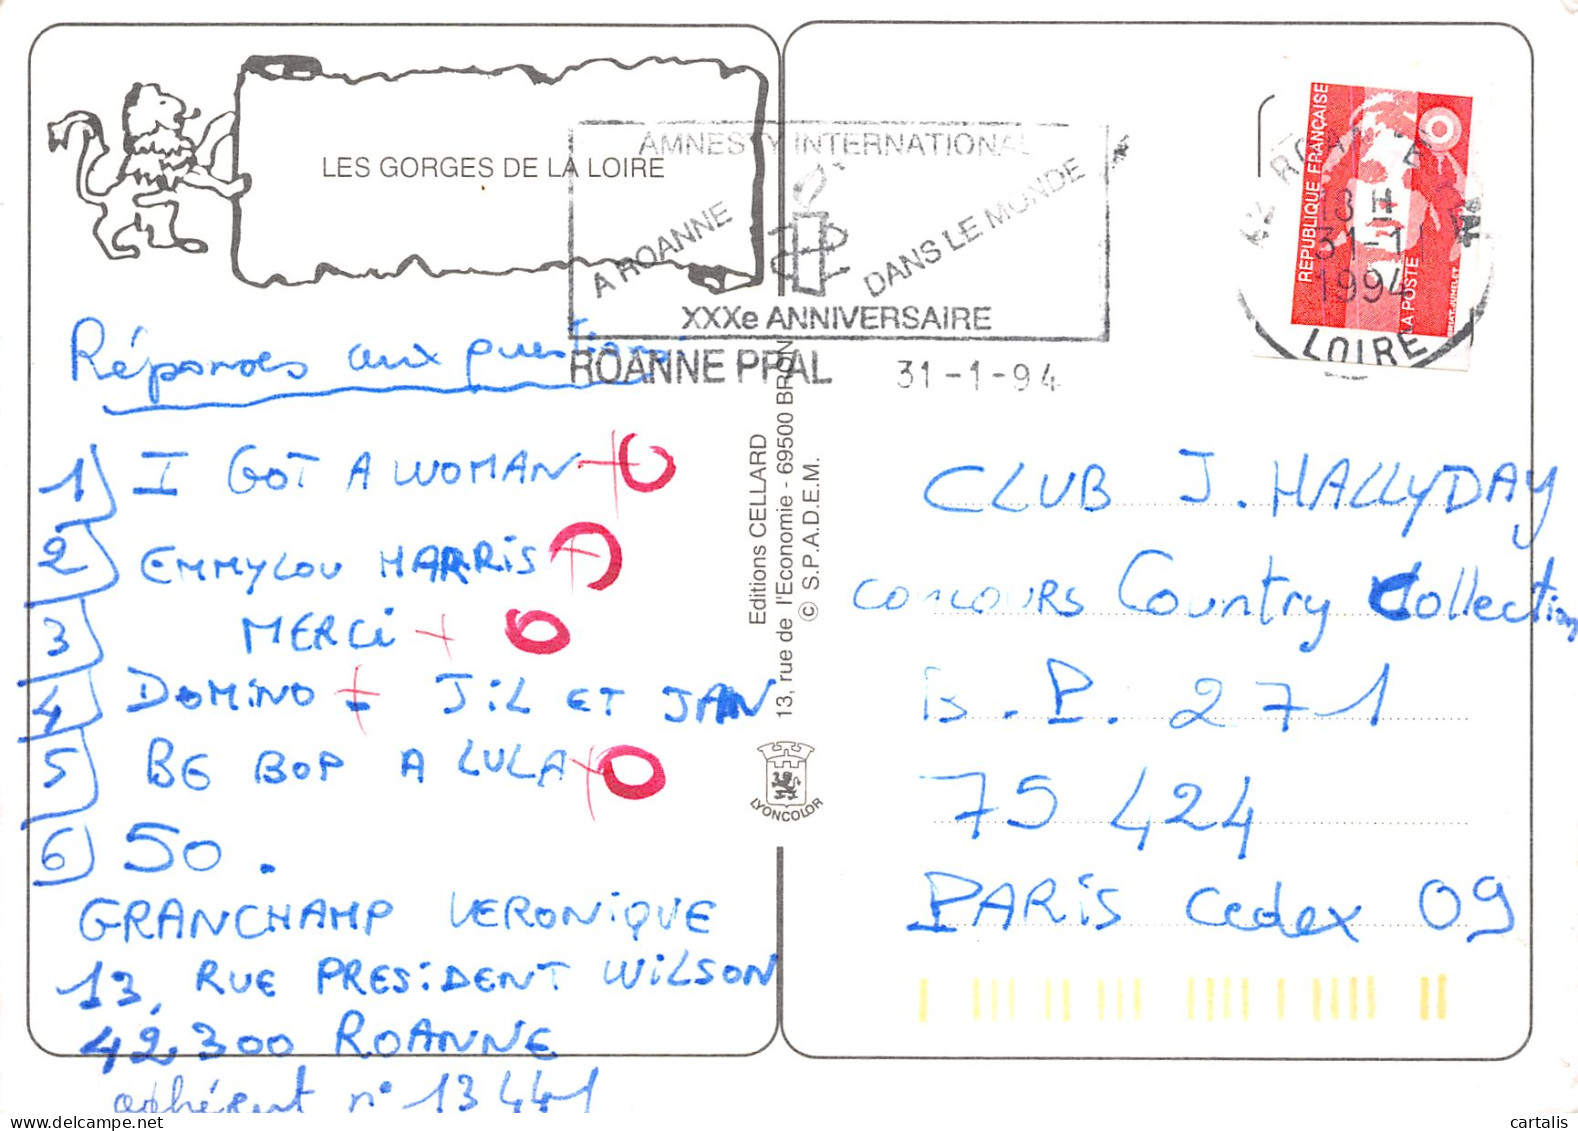 LES GORGES DE LA LOIRE
AMNESTY INTERNATIONAL
A ROANNE
DANS LE MONDE
XXXe ANNIVERSAIRE
ROANNE PPAL 31-1-94
RÉPUBLIQUE FRANÇAISE
LA POSTE
42 ROANNE
18 H
31-1
1994
LOIRE
Réponses aux questions
1) I GOT A WOMAN + O
2) EMMYLOU HARRIS +
3) MERCi + O
4) DOMiNO + = JiL ET JAN
5) BE BOP A LULA + O
6) 50.
GRANCHAMP VERONiQUE
13, RUE PRESiDENT WiLSON
42.300 ROANNE
adhérent n° 13441
Editions CELLARD
13, rue de l'Economie - 69500 BRON
© S.P.A.D.E.M.
LYONCOLOR
CLUB J. HALLYDAY
CONCOURS Country Collection
B.P. 271
75 424
PARiS Cedex 09
cartalis